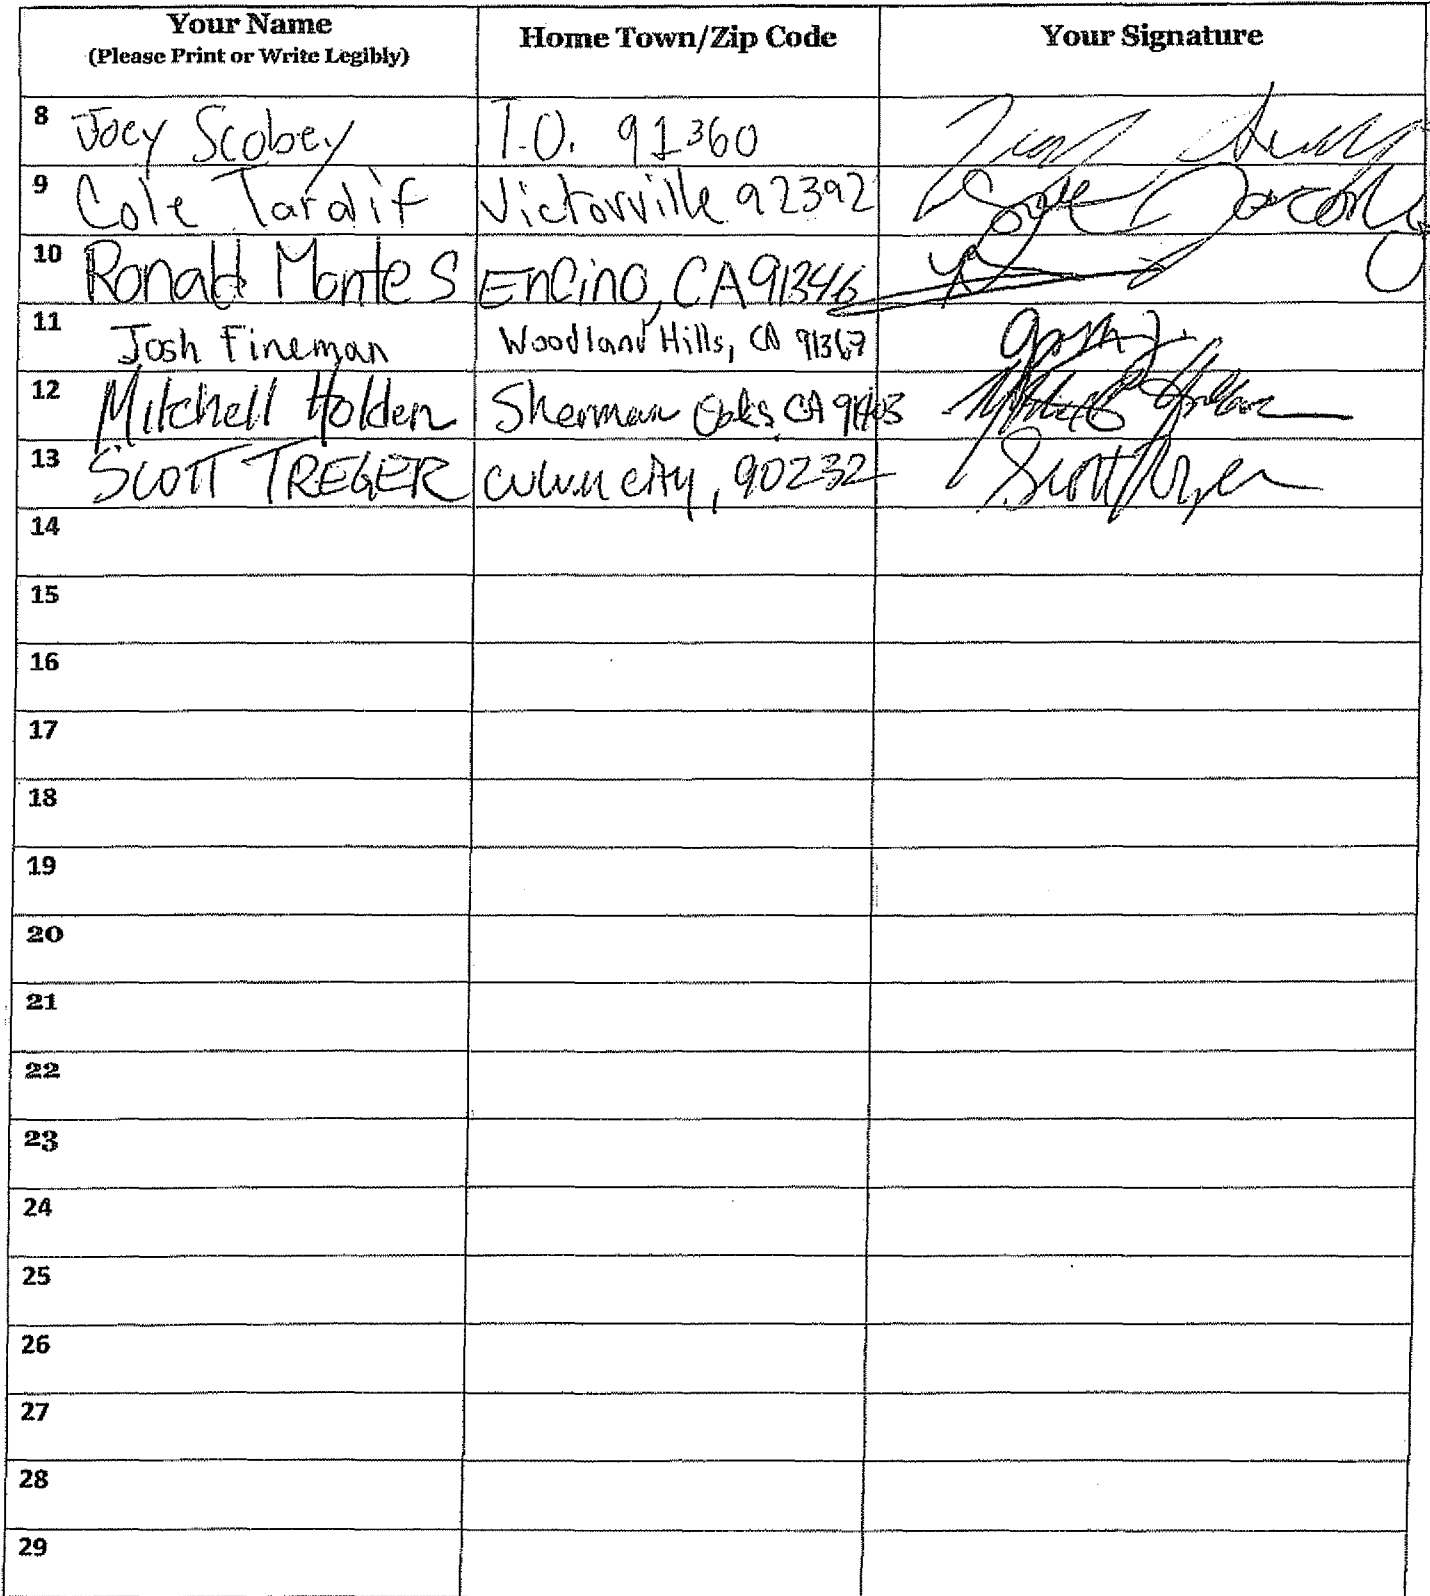 Your Name Home Town/Zip Code Your Signature
(Please Print or Write Legibly)
8 Joey Scobey T.O. 91360
9 Cole Tardif Victorville 92392
10 Ronald Montes Encino, CA 91346
11 Josh Fineman Woodland Hills, CA 91367 Josh
12 Mitchell Holden Sherman Oaks, CA 91403 Mitchell Holden
13 SCOTT TREGER Culver City, 90232 Scott Treger
14
15
16
17
18
19
20
21
22
23
24
25
26
27
28
29